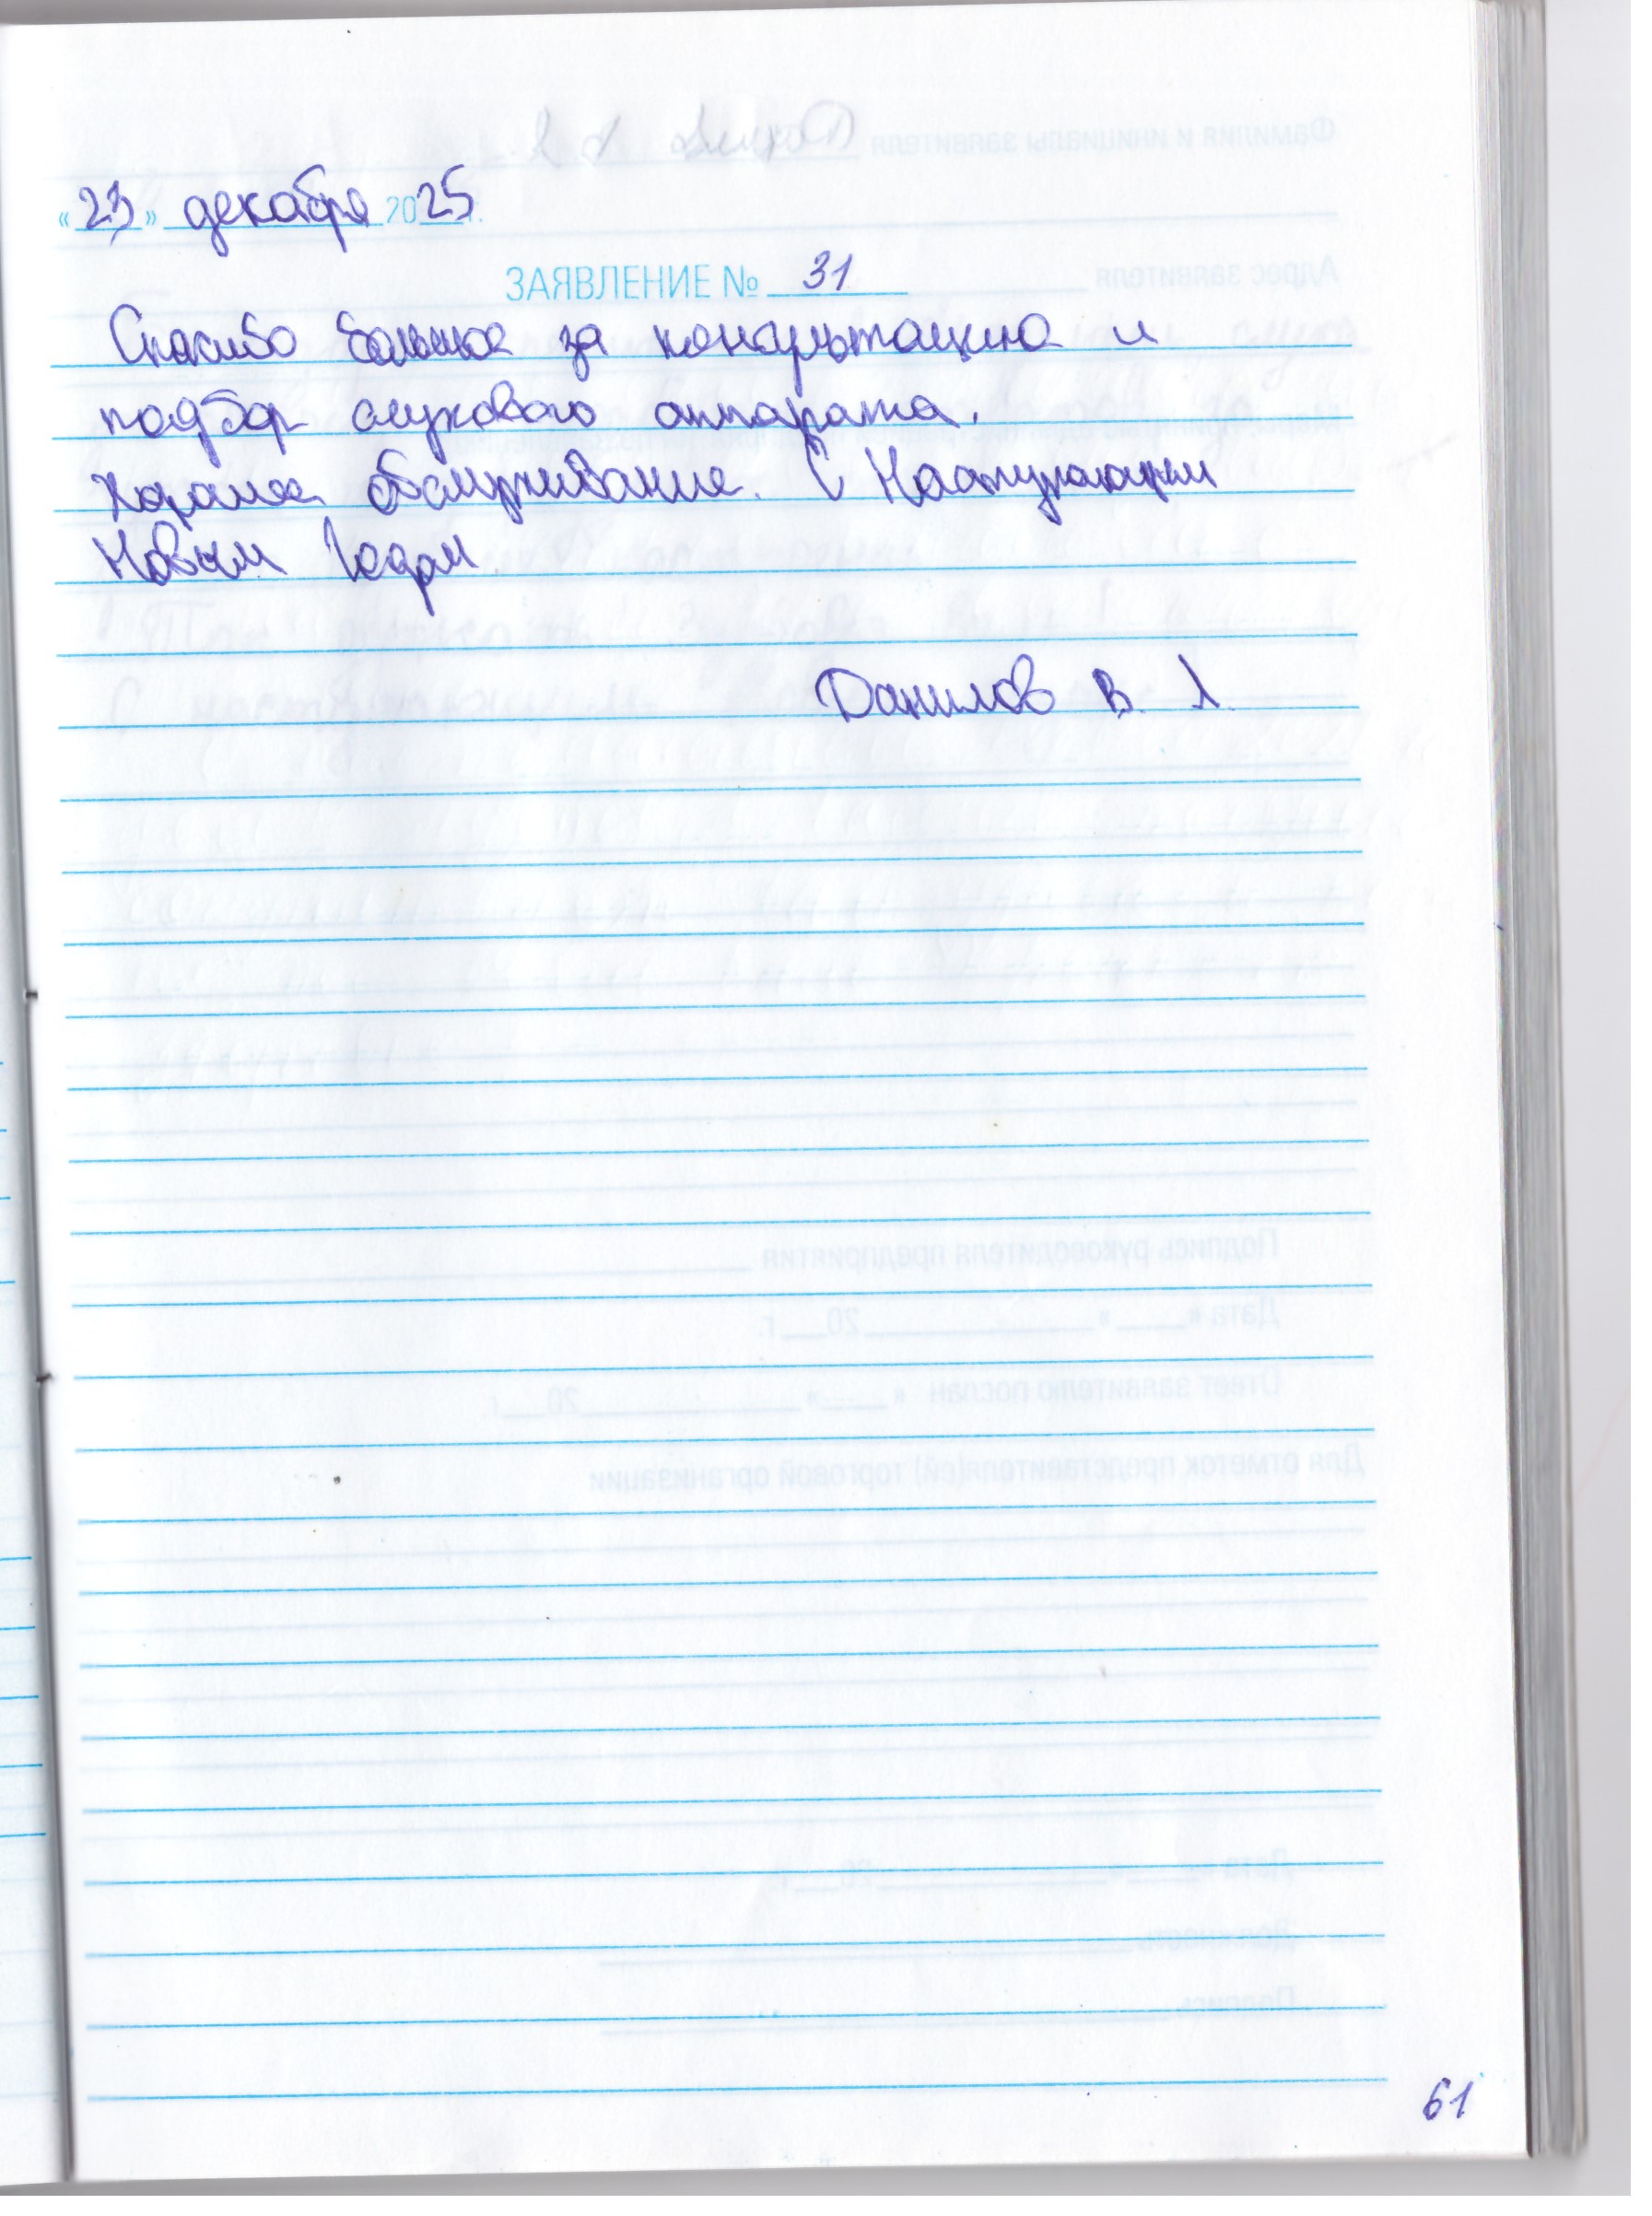 «23» декабря 2025 г.
ЗАЯВЛЕНИЕ № 31
Спасибо большое за консультацию и
подбор слухового аппарата.
Хорошее обслуживание. С Наступающим
Новым Годом
Данилов В. Л.
61